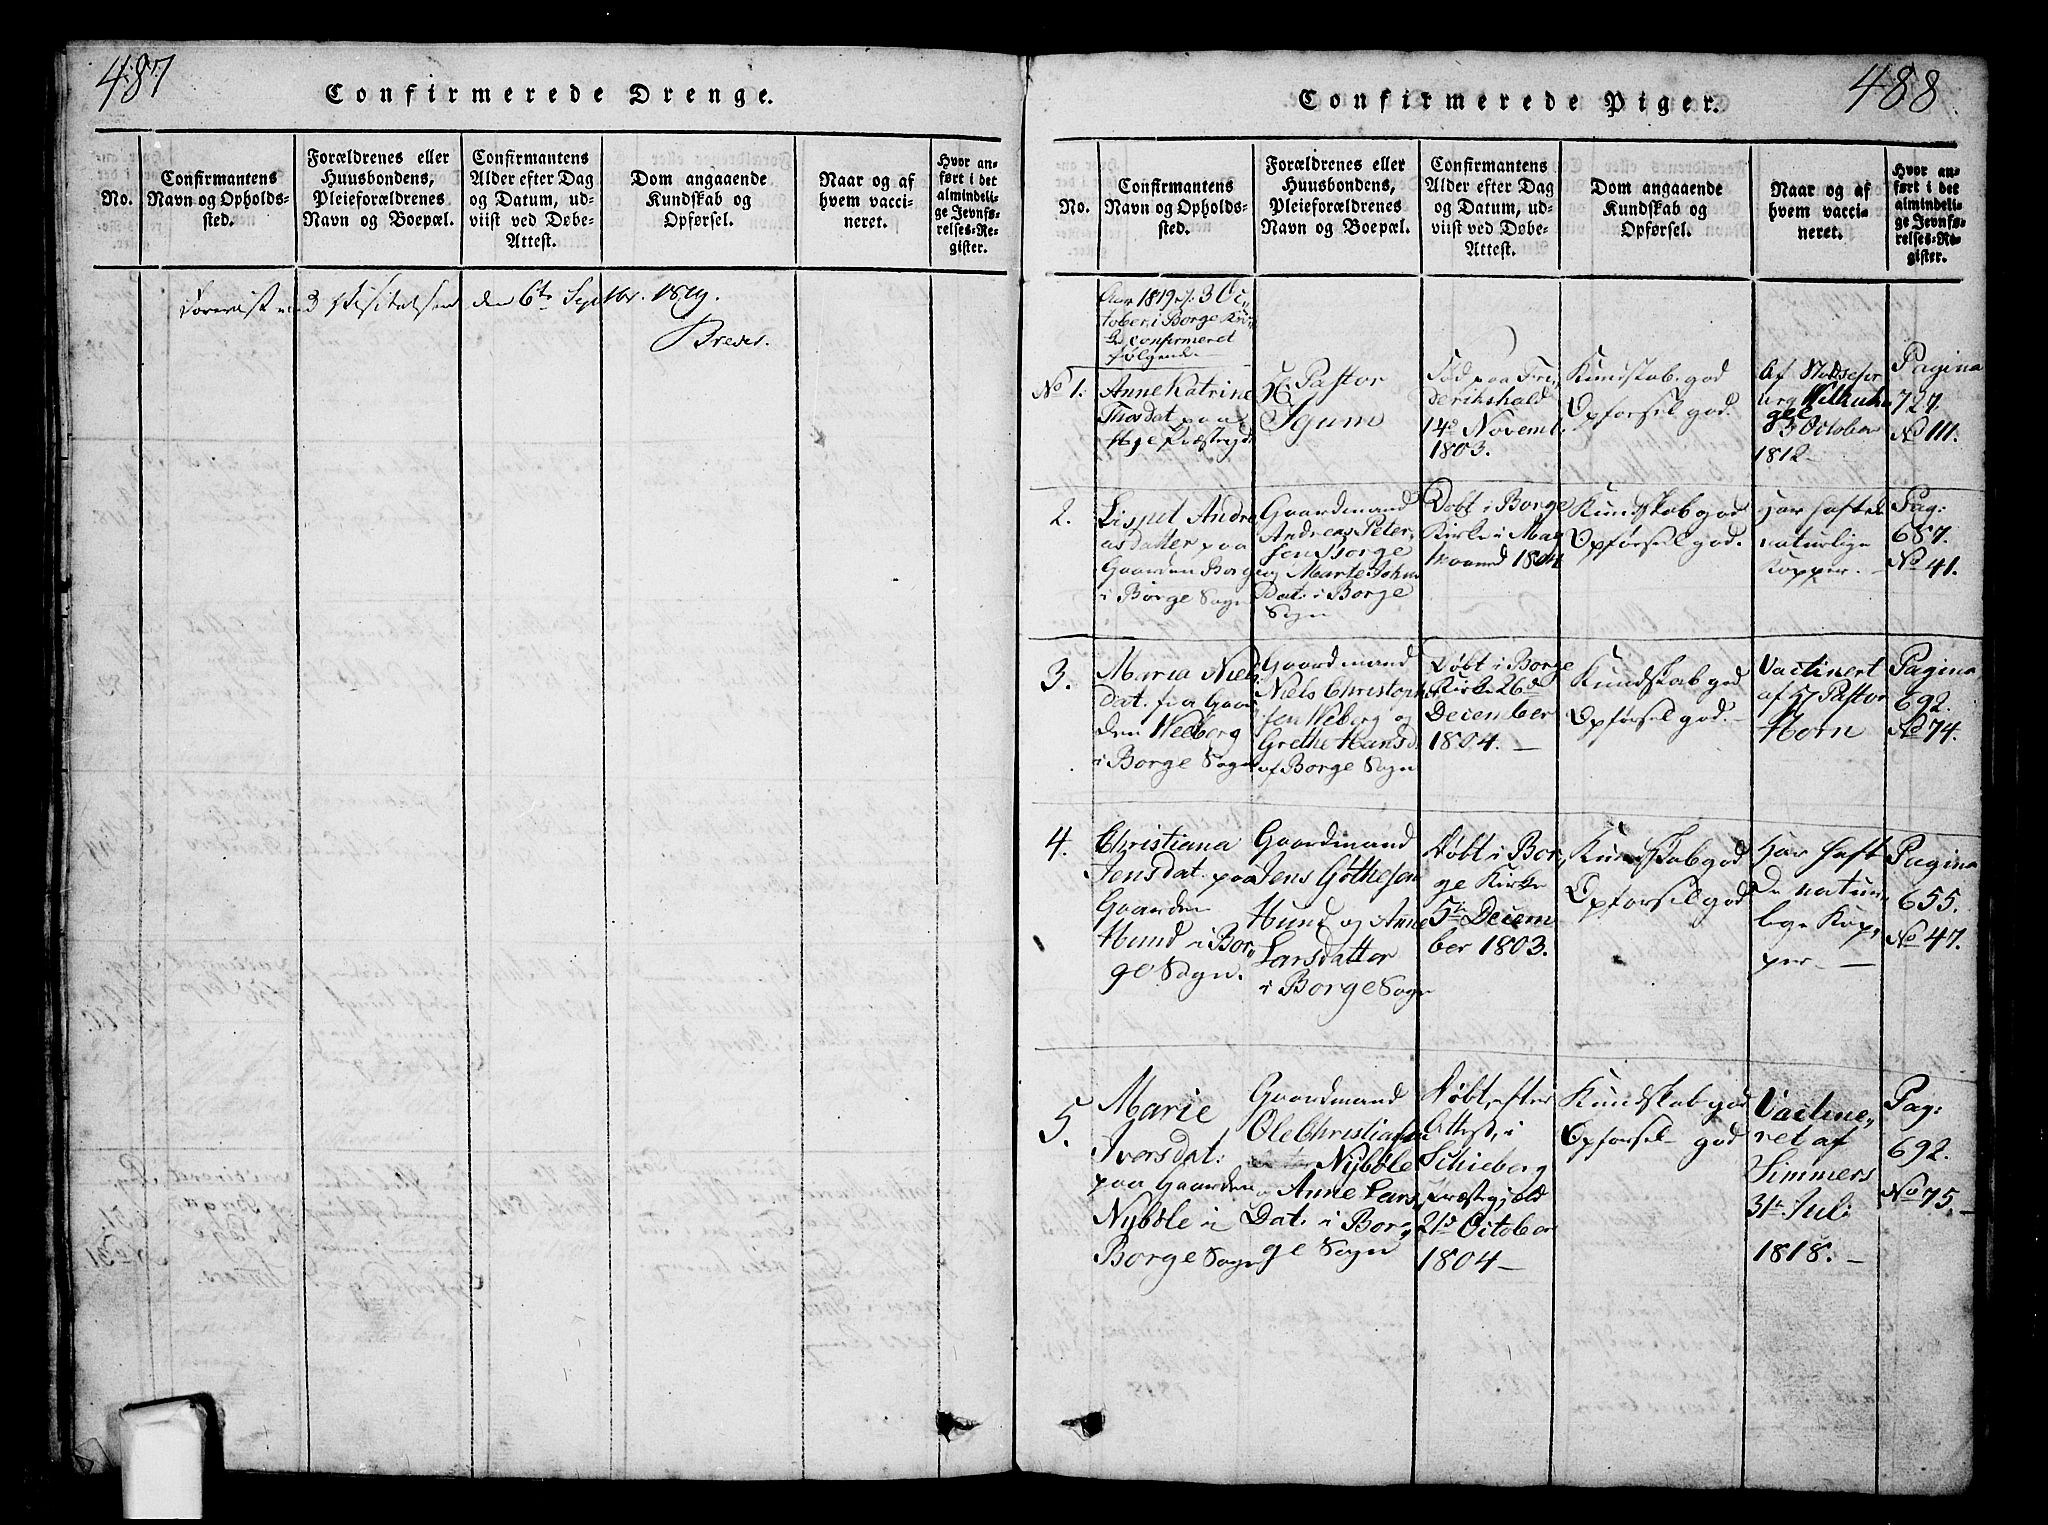 487
Confirmerede Drenge.
No.
Confirmantens
Navn og Opholds-
sted.
Forældrenes eller
Huusbondens,
Pleieforældrenes
Navn og Boepæl.
Confirmantens
Alder efter Dag
og Datum, ud-
viist ved Døbe-
Attest.
Dom angaaende
Kundskab og
Opførsel.
Naar og af
hvem vacci-
neret.
Hvor an-
ført i det
almindeli-
ge Jevnfø-
relses-Re-
gister.
Foreviist ved Visitatsen den 6te Septbr. 1819.
488
Confirmerede Piger.
No.
Confirmantens
Navn og Opholds-
sted.
Forældrenes eller
Huusbondens,
Pleieforældrenes
Navn og Boepæl.
Confirmantens
Alder efter Dag
og Datum, ud-
viist ved Døbe-
Attest.
Dom angaaende
Kundskab og
Opførsel.
Naar og af
hvem vacci-
neret.
Hvor an-
ført i det
almindeli-
ge Jevnfø-
relses-Re-
gister.
Aar 1819 d. 3 Oc,,
tober i Borge Kir,,
confirmeret
følgende
No 1.
Anne Katrine
Thosdat. paa
Pastor
Sgum
Fød paa Fre,,
derikshald
14de Novemb.
1803.
Kundskab god
Opførsel god.
Af
October
1812
Pagina
727.
No 111.
2.
Lisput Andre,,
asdatter paa
Gaarden Borge
i Borge Sogn
Gaardmand
Andreas Peter,,
sen Borge
og Marte Johns
Dat. i Borge
Sogn
Døbt i Borge
Kirke i May
Maaned 1804
Kundskab god
Opførsel god.
Har haft de
naturlige
Kopper.
Pag:
687.
No 41.
3.
Maria Niels
Dat. fra Gaar
den Weeberg
i Borge Sogn
Gaardmand
Niels Christoph
sen Weberg og
Grethe Hansd.
af Borge Sogn
Døbt i Borge
Kirke 26de
December
1804. —
Kundskab god
Opførsel god. —
Vactinert
af Hr Pastor
Horn
Pagina
692.
No 74.
4.
Christiana
Jensdat. paa
Gaarden
Hund i Bor,,
ge Sogn.
Gaardmand
Jens Gothesen
Hund og Anne
Larsdatter
i Borge Sogn
Døbt i Bor,,
ge Kirke
5te Decem
ber 1803.
Kundskab god
Opførsel god
Har haft
De natur,,
lige Kop,,
per. —
Pagina
655.
No 47.
5.
Marie
Iversdat:
paa Gaarden
Nybøle i
Borge Sogn
Gaardmand
Ole Christiansen
Nybøle
og Anne Lars,,
Dat. i Bor,,
ge Sogn
Døbt, efter
Attest, i
Schieberg
Præstegjeld
21de October
1804 —
Kundskab god
Opførsel god
Vactine,,
ret af
Simmers
31te Juli
1818. —
Pag:
692.
No 75. —